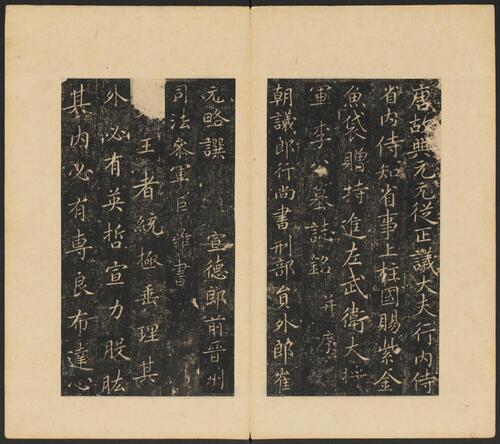 唐故興元元從正議大夫行内侍
省内侍知省事上柱國賜紫金
魚袋贈特進左武衛大將
軍李公墓誌銘 并序
朝議郎行尚書刑部員外郎崔
元略譔 宣德郎前晉州
司法叅軍巨雅書
王者統極垂理其
外必有英哲宣力股肱
其内必有專良布達心